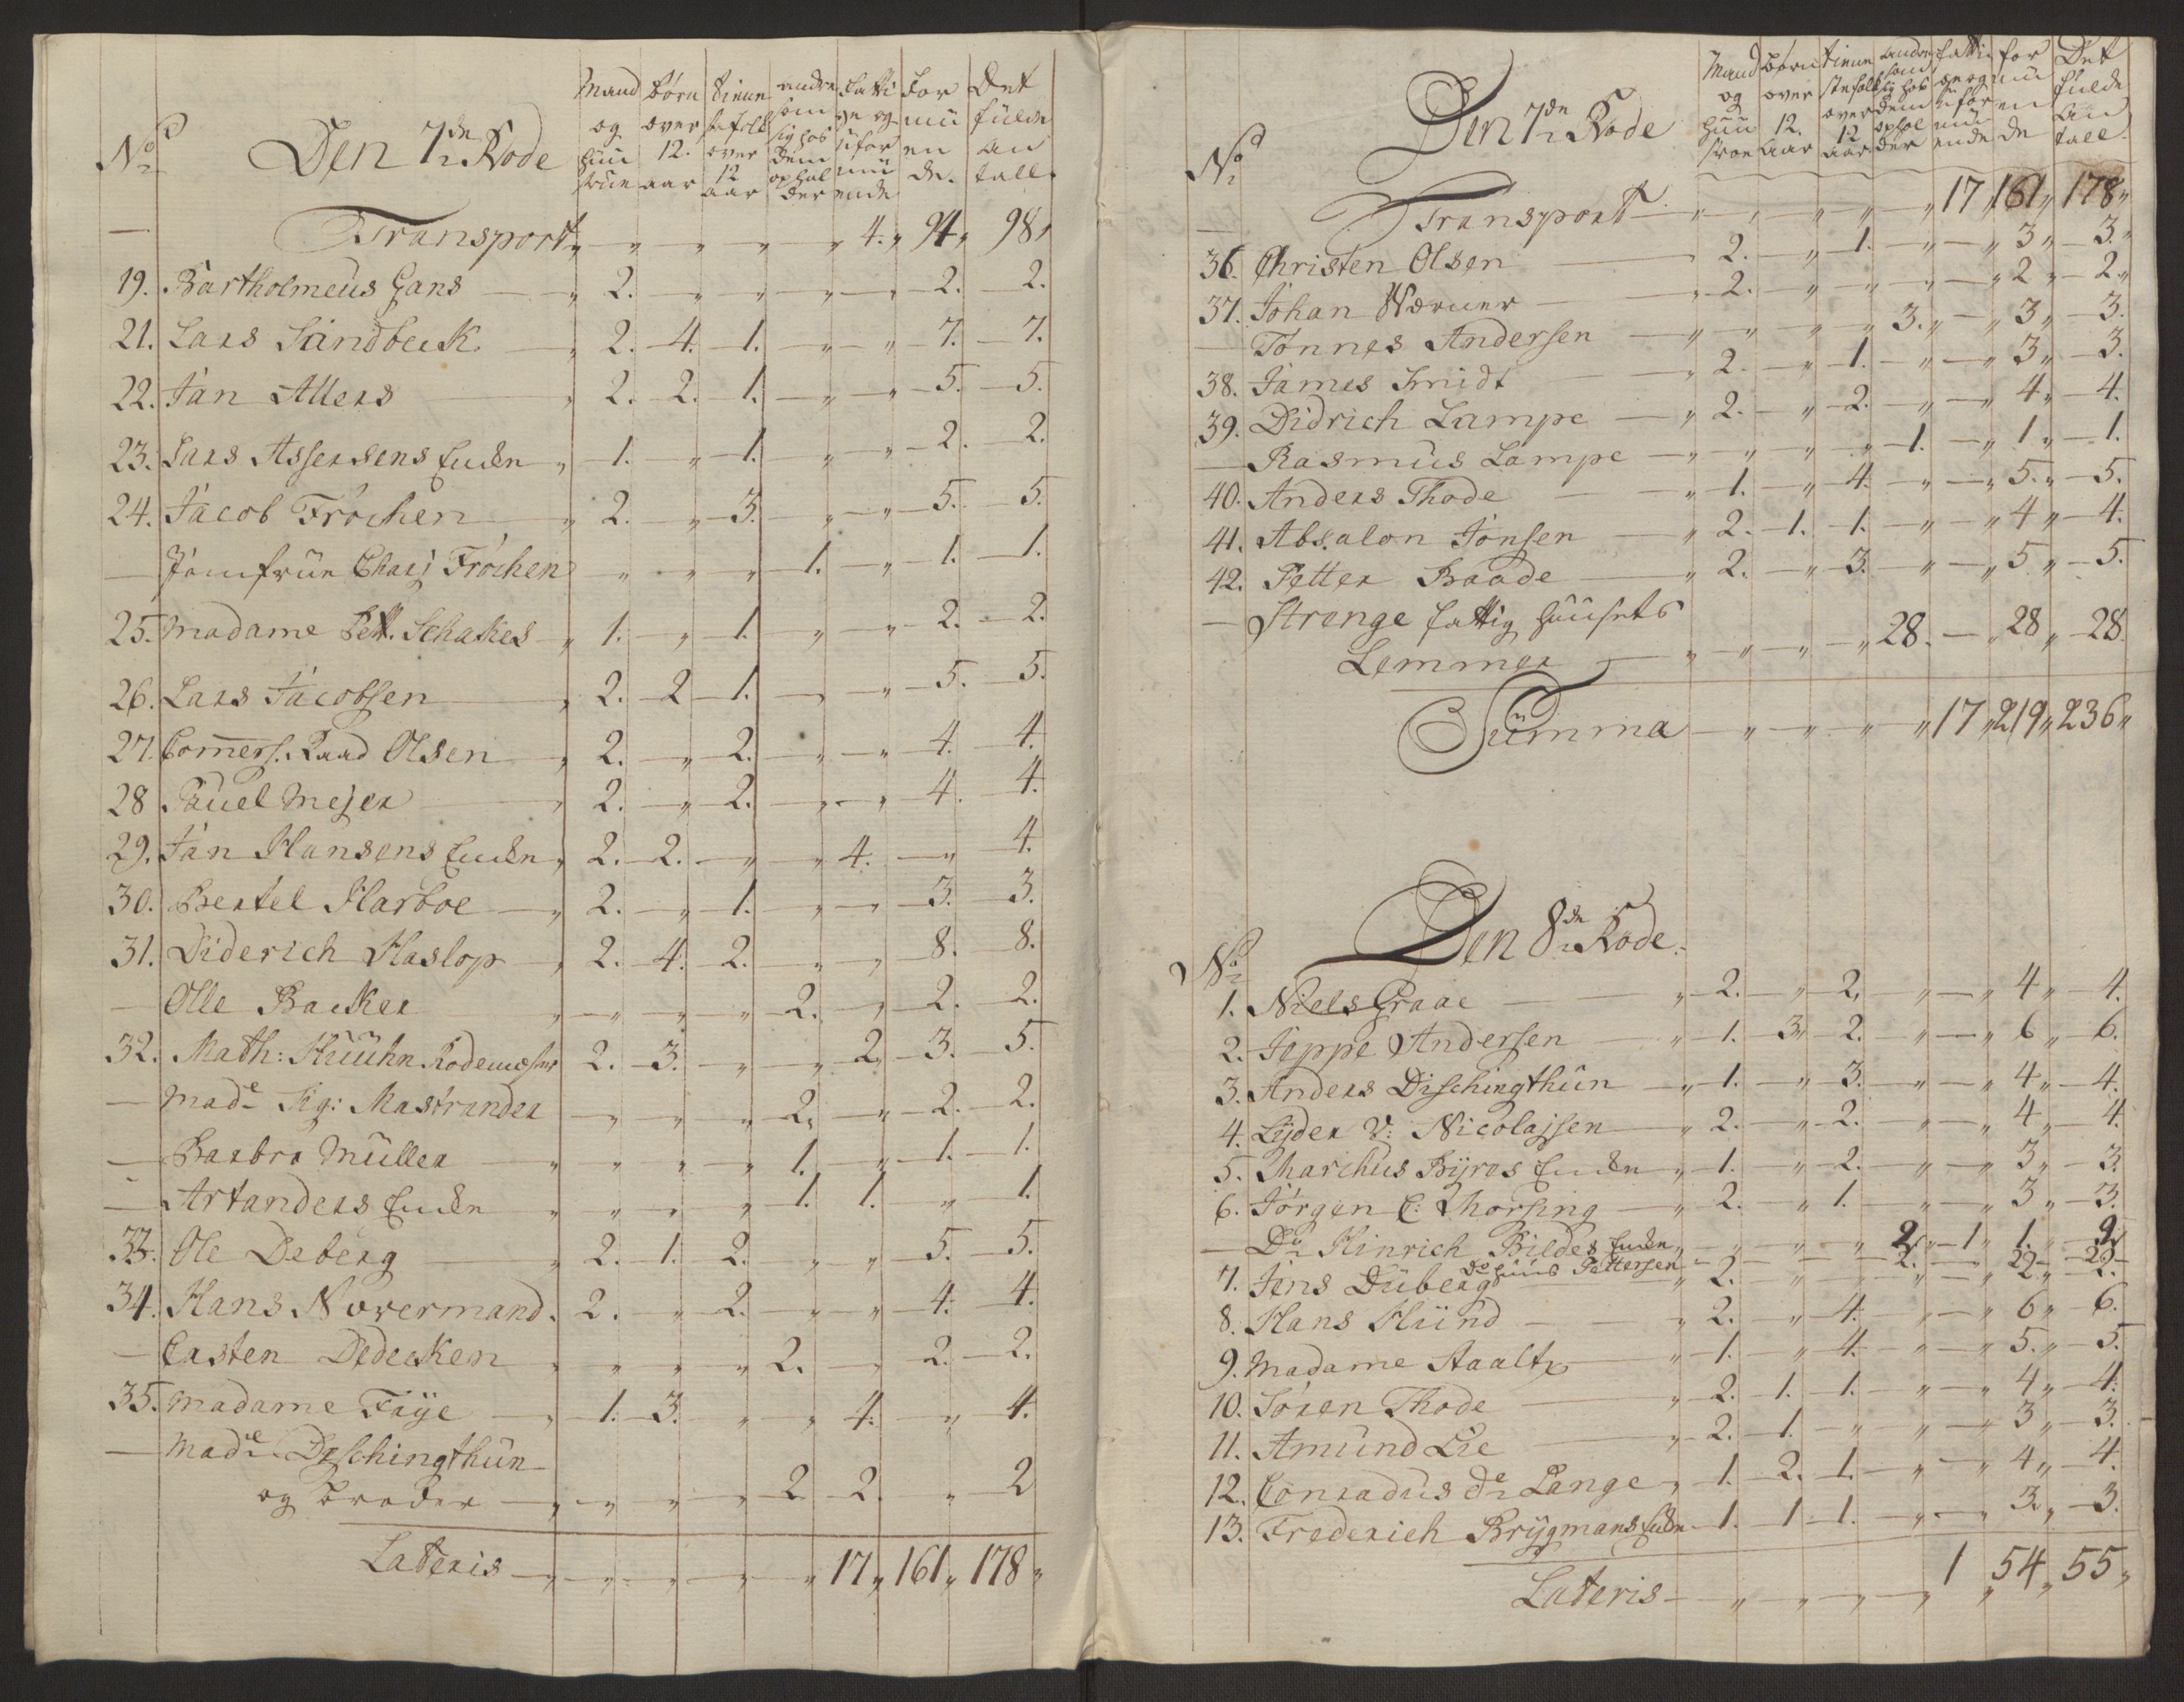 No Den 7de Rode Mand og Huustrue Børn over 12. aar Tienestefolk over 12 aar andre som sig hos dem opholder Fattige og uformuende Formuende. Det fulde antall.
— Transport " " " " " 4. " 94 " 98 "
19. Bartholmeus Gans — " 2. " " " " 2. 2.
21. Lars Sandbeck — " 2. 4. 1. " " 7. 7.
22. Jan Allers " 2. 2. 1. " " 5. 5.
23. Lars Assersens Enke " 1. " 1. " " 2. 2.
24. Jacob Fröchen " 2. " 3. " " 5. 5.
— Jomfrue Chatj Fröchen " " " " 1. " 1. 1.
25. Madame Pett. Schakes " 1. " 1. " " 2. 2.
26. Lars Jacobsen " 2. 2 1. " " 5. 5.
27. Commers. Raad Olsen " 2. " 2. " " 4. 4.
28 Pauel Mejer " 2. " 2. " " 4. 4.
29. Jan Hansens Enke " 2. 2. " " 4. " 4.
30. Bertel Harboe " 2. " 1. " " 3. 3.
31. Diderich Haslop " 2. 4. 2. " " 8. 8.
— Olle Backer " " " " 2. " 2. 2.
32. Math: Kuühn Rodemester 2. 3. " " 2. 3. 5.
— Made Sig: Mastrander " " " 2. " 2. 2.
— Barbra Müller " " " " 1. " 1. 1.
— Artanders Enke " " " " 1. 1. " 1.
33. Ole Deberg " 2. 1. 2. " " 5. 5.
34. Hans Novermand. 2. " 2. " " 4. 4.
— Casten Dedecken " " " " 2. " 2. 2.
35. Madame Faÿe " 1. 3. " " 4. " 4.
— Made Deschingthun
og broder " " " " 2 2. " 2
Lateris " " " " " 17 " 161 " 178 "
No Den 7de Rode Mand og Huustroe Børn over 12. aar Tienestefolk over 12 aar andre som sig hos dem opholder Fattige og uformuende Formuende Det fulde Antall
— Transport " " " " " 17 " 161 " 178 "
36. Christen Olsen 2. " 1. " " 3 " 3. "
37. Johan Wærner " 2. " " " " 2 " 2. "
— Tönnes Andersen " " " " 3. " 3 " 3.
38. James Smidt " 2. " 1. " " 3 " 3.
39. Didrich Lampe " 2. " 2. " " 4 " 4.
— Rasmus Lampe " " " " 1. " 1 " 1.
40. Anders Thode " 1. " 4. " " 5. " 5.
41. Absalon Jonsen " 2. 1. 1. " " 4 " 4.
42. Petter Baade " 2. " 3. " " 5 " 5.
— Strenge fattig Huusets
Lemmer " " " " 28. " 28 " 28.
Summa " " " " 17 " 219 " 236 "
Den 8de Rode.
No
1. Niels Graae " 2. " 2. " " 4 " 4.
2. Jeppe Andersen " 1. 3 2. " " 6 " 6.
3. Anders Dischingthun " 1. " 3. " " 4 " 4.
4. Lÿder V: Nicolajsen " 2. " 2. " " 4 " 4.
5. Marchus Bÿros Enke " 1. " 2. " " 3 " 3.
6. Jörgen C: Thorsing " 2. " 1. " " 3 " 3.
— Do Hinrich Bildes Enke " " " " 2. 1 1. " 2
Do Huus Pettersen " 2. " 2 2
7. Jens Duberg " 2. " " " " 2 " 2.
8. Hans Hund " 2. " 4. " " 6 " 6.
9. Madame Aaaltz " 1. " 4. " " 5. " 5.
10. Sören Thode " 2. 1. 1. " " 4 " 4.
11. Amund Lie " 2. 1. " " " 3 " 3.
12. Conradus de Lange " 1. 2. 1. " " 4 " 4.
13. Frederich Brÿgmans Enke 1. 1. 1. " " 3. " 3.
Lateris " " " " 1 " 54 " 55 "